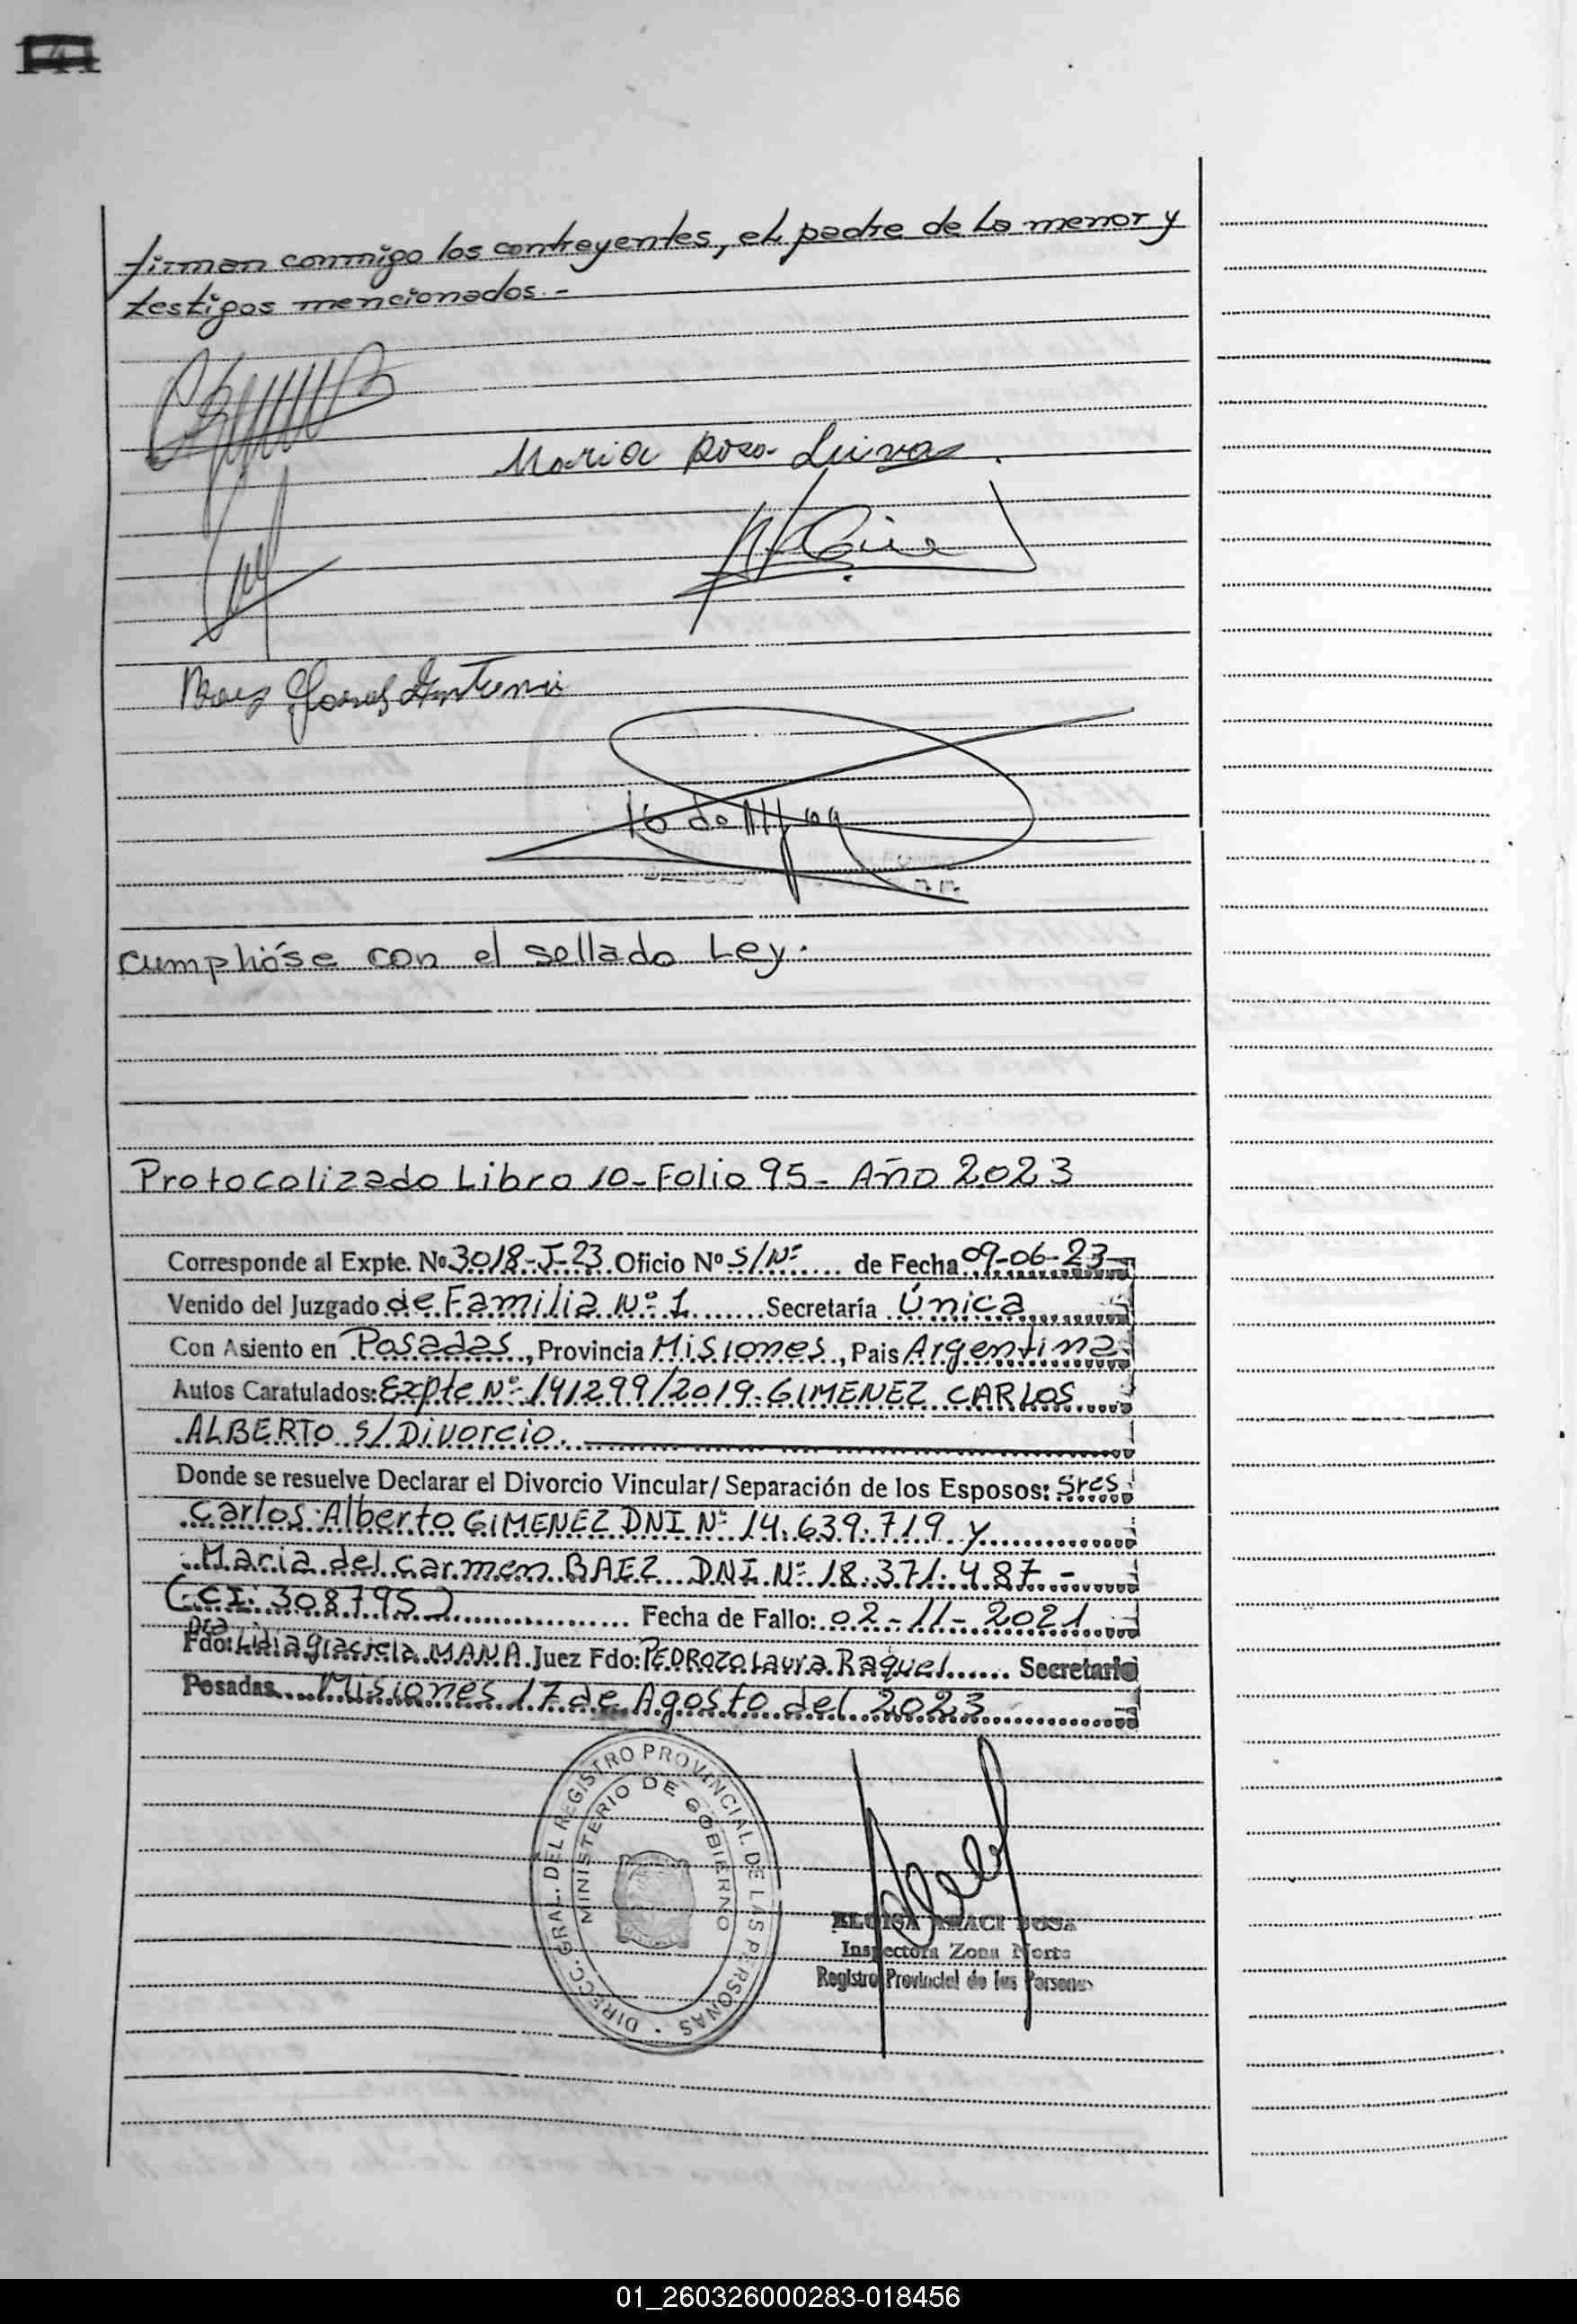 firman conmigo los contrayentes, el padre de la menor y
testigos mencionados.-
Maria Rosa Leiva
Baez
Cumplióse con el sellado Ley.
Protocolizado Libro 10-Folio 95- Año 2023
Corresponde al Expte. Nº 3018-J-23 Oficio Nº S/Nº de Fecha 09-06-23
Venido del Juzgado de Familia Nº 1 Secretaría Única
Con Asiento en Posadas, Provincia Misiones, Pais Argentina
Autos Caratulados: Expte Nº 141299/2019 GIMENEZ CARLOS
ALBERTO S/Divorcio.
Donde se resuelve Declarar el Divorcio Vincular/Separación de los Esposos: Sres
Carlos Alberto GIMENEZ DNI Nº 14.639.719 y
Maria del Carmen BAEZ DNI Nº 18.371.487 -
(CI: 308795) Fecha de Fallo: 02-11-2021
Dra
Fdo: Lidia Graciela MANA Juez Fdo: PEDROZO Laura Raquel Secretario
Posadas Misiones 17 de Agosto del 2023
DIRECC. GRAL. DEL REGISTRO PROVINCIAL DE LAS PERSONAS
MINISTERIO DE GOBIERNO
ELOISA ARACI SOSA
Inspectora Zona Norte
Registro Provincial de las Personas
01_260326000283-018456